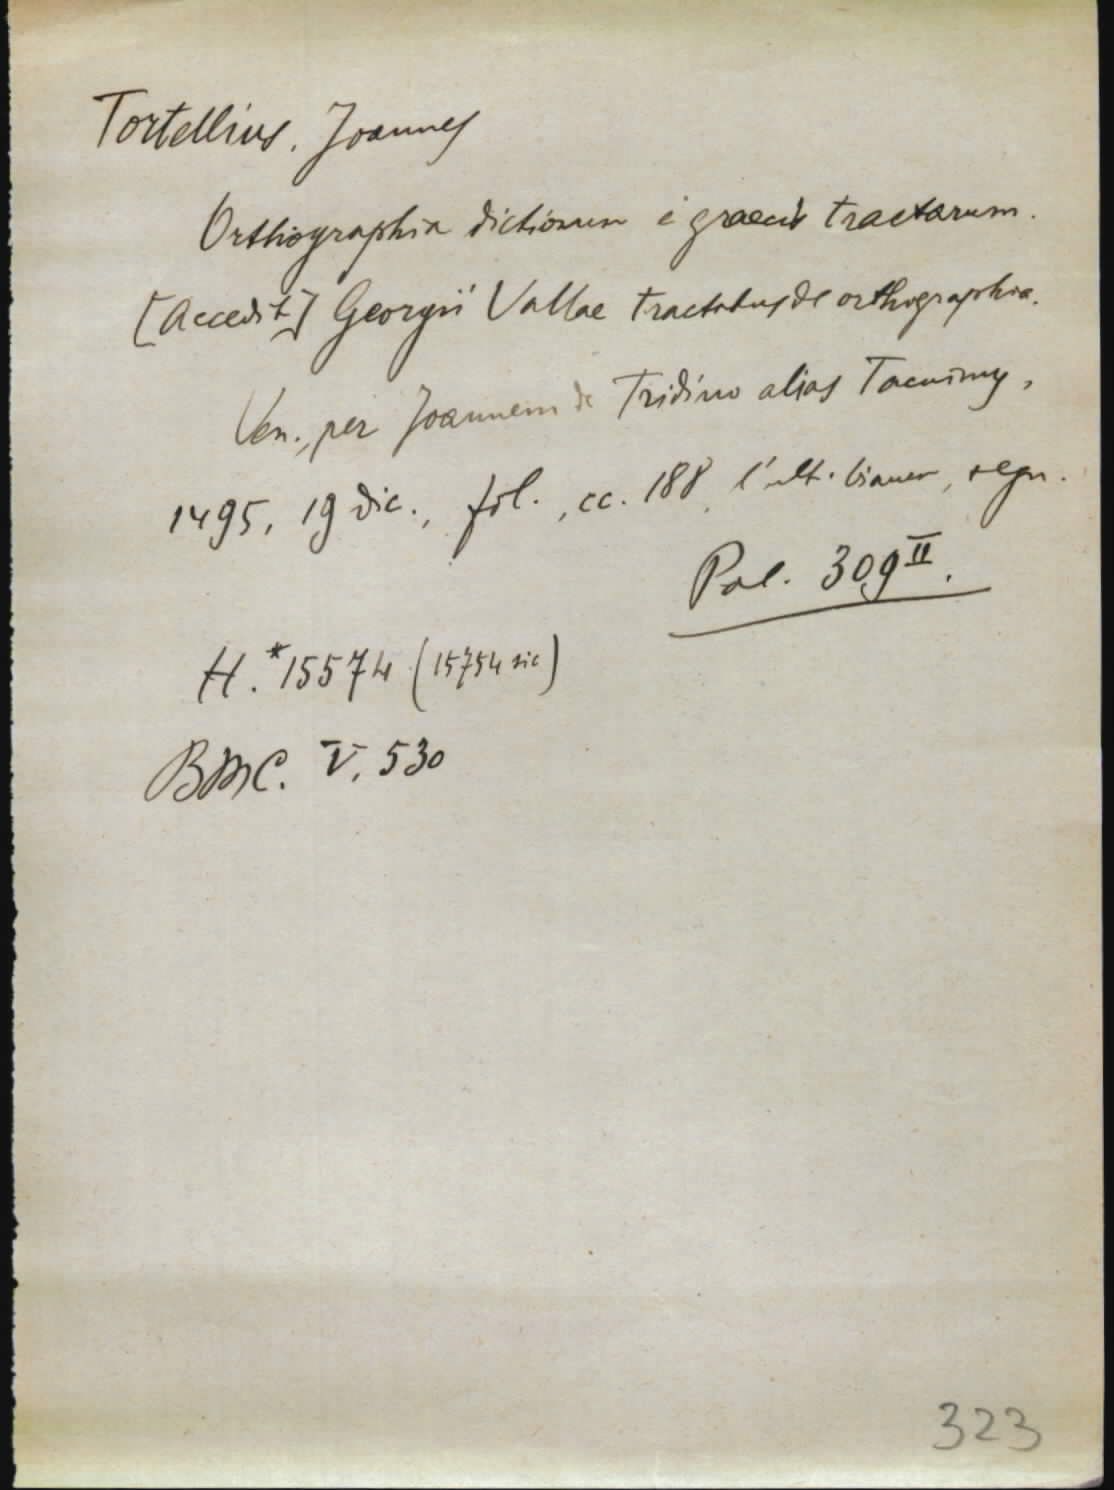 Tortellius, Joannes
Orthographia dictionum e graecis tractarum.
[Accedit] Georgii Vallae tractatus de orthographia.
Ven., per Joannem de Tridino alias Tacuinus,
1495, 19 dic., fol., cc. 188, l'ult. bianca, segn.
Pal. 309 II.
H. *15574 (15754 sic)
BMC. V, 530
323